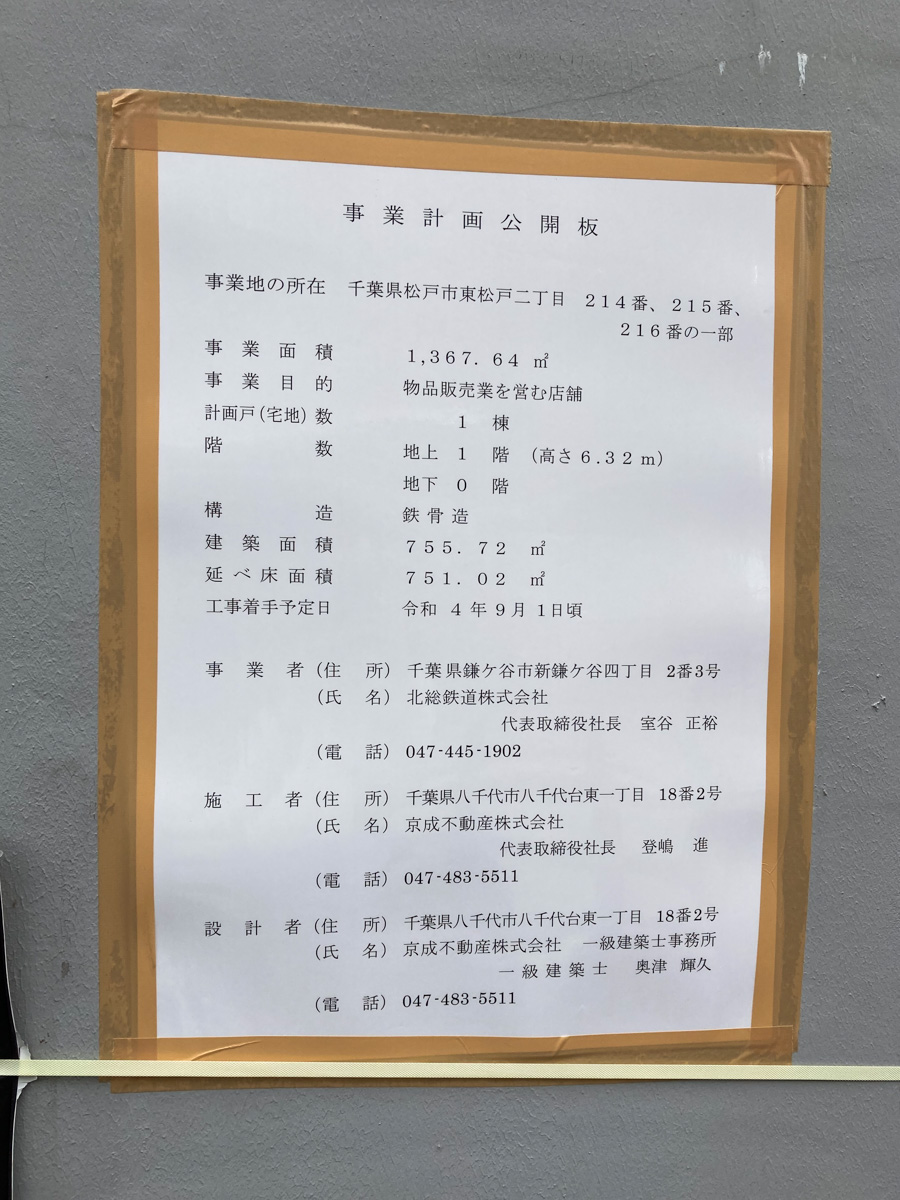 事業計画公開板
事業地の所在 千葉県松戸市東松戸二丁目 214番、215番、
216番の一部
事業面積 1,367.64 ㎡
事業目的 物品販売業を営む店舗
計画戸(宅地)数 1 棟
階数 地上 1 階 (高さ6.32m)
地下 0 階
構造 鉄骨造
建築面積 755.72 ㎡
延べ床面積 751.02 ㎡
工事着手予定日 令和 4年9月1日頃
事業者(住所) 千葉県鎌ケ谷市新鎌ケ谷四丁目 2番3号
(氏名) 北総鉄道株式会社
代表取締役社長 室谷 正裕
(電話) 047-445-1902
施工者(住所) 千葉県八千代市八千代台東一丁目 18番2号
(氏名) 京成不動産株式会社
代表取締役社長 登嶋 進
(電話) 047-483-5511
設計者(住所) 千葉県八千代市八千代台東一丁目 18番2号
(氏名) 京成不動産株式会社 一級建築士事務所
一級建築士 奥津 輝久
(電話) 047-483-5511